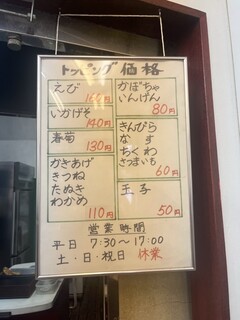 トッピング 価格
えび
160円
いかげそ
140円
春菊
130円
かきあげ
きつね
たぬき
わかめ
110円
かぼちゃ
いんげん
80円
きんぴら
なす
ちくわ
さつまいも
60円
玉子
50円
営業時間
平日 7:30~17:00
土・日・祝日 休業